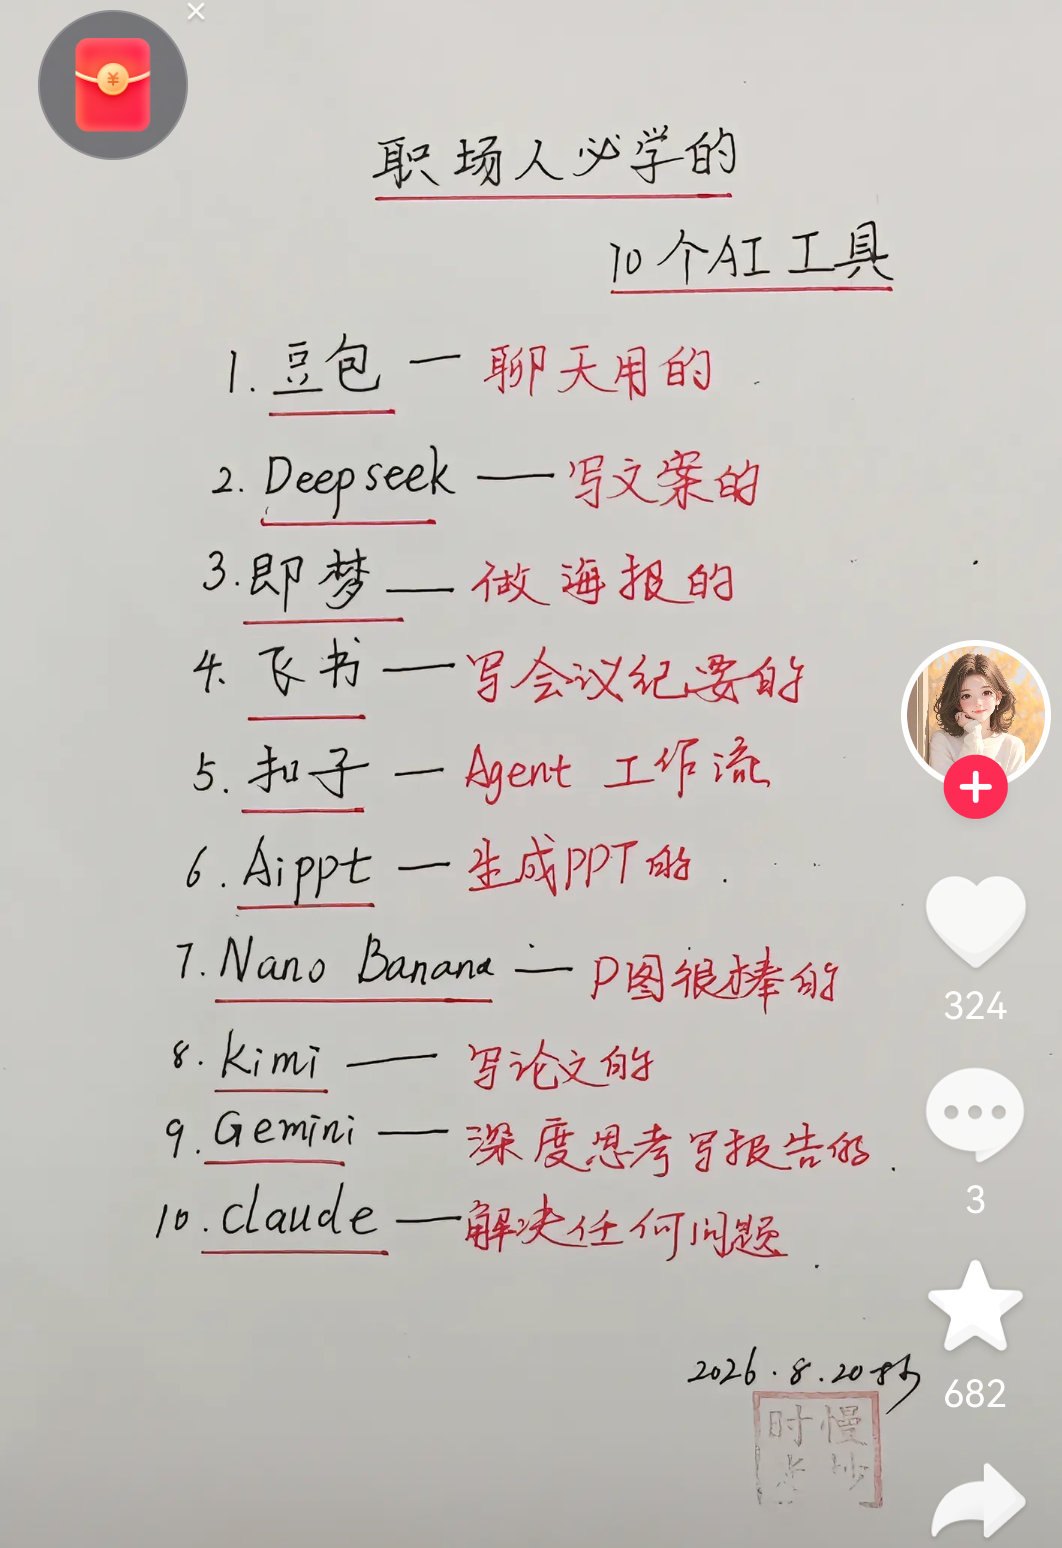 职场人必学的
10个AI工具
1. 豆包 — 聊天用的
2. Deepseek — 写文案的
3. 即梦 — 做海报的
4. 飞书 — 写会议纪要的
5. 扣子 — Agent 工作流
6. Aippt — 生成PPT的
7. Nano Banana — P图很棒的
8. kimi — 写论文的
9. Gemini — 深度思考写报告的
10. claude — 解决任何问题
324
3
682
2026.8.20抄
时慢
抄